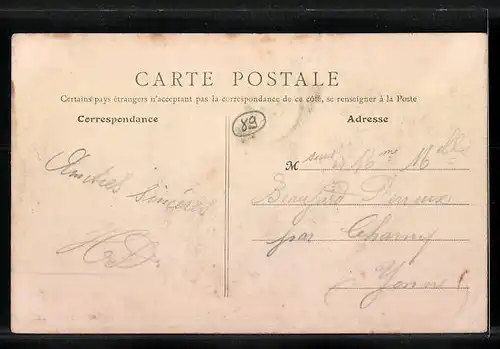 CARTE POSTALE
Certains pays étrangers n'acceptant pas la correspondance de ce côté, se renseigner à la Poste
Correspondance
89
Adresse
M
Mme Melle
Amitiés sincères
Perreux
HD
par Charny
Yonne